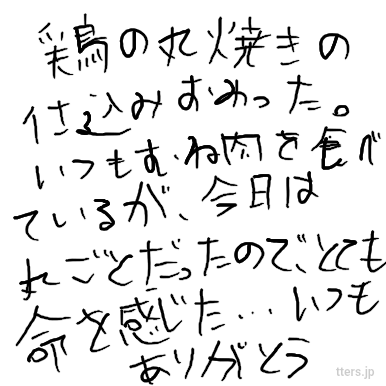 鶏の丸焼きの
仕込みおわった。
いつもむね肉を食べ
ているが、今日は
丸ごとだったので、とても
命を感じた…いつも
ありがとう
tters.jp